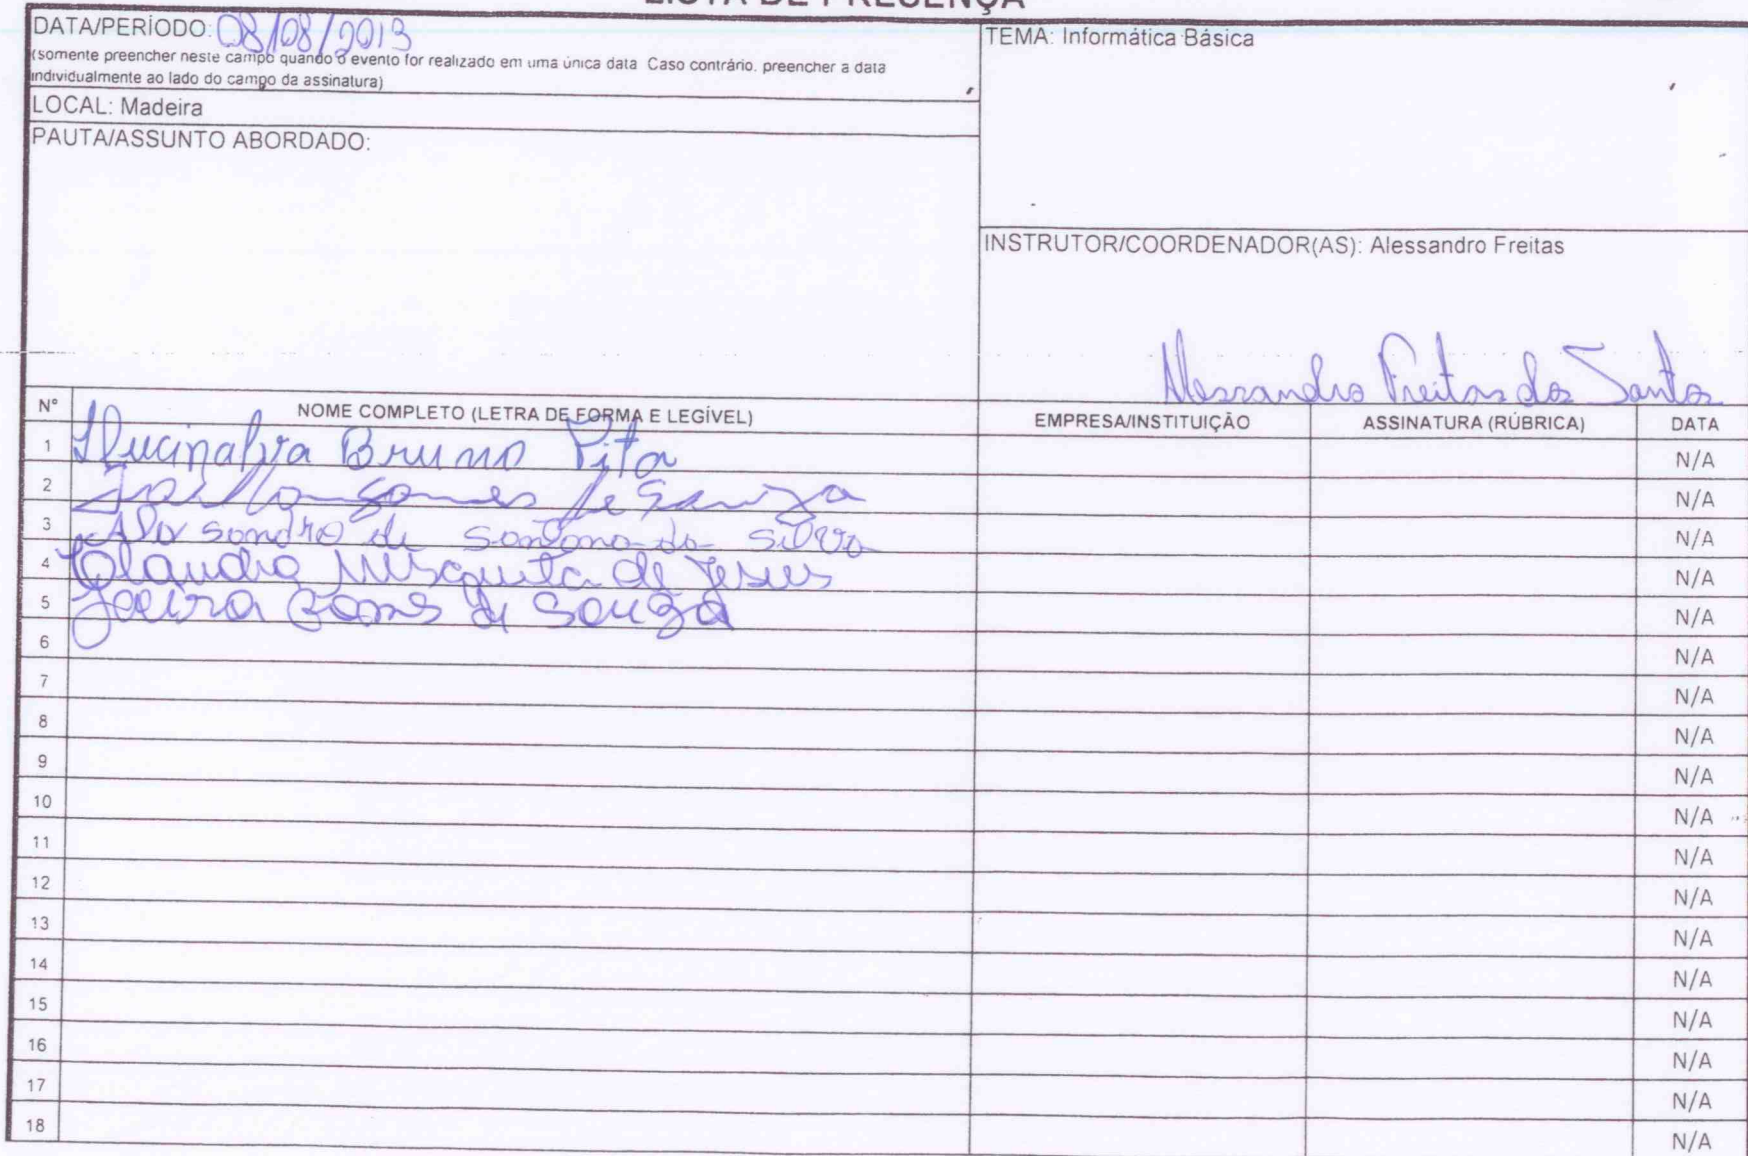 LISTA DE PRESENÇA
DATA/PERÍODO: 08/08/2013
(somente preencher neste campo quando o evento for realizado em uma única data. Caso contrário, preencher a data
individualmente ao lado do campo da assinatura)
LOCAL: Madeira
PAUTA/ASSUNTO ABORDADO:
TEMA: Informática Básica
INSTRUTOR/COORDENADOR(AS): Alessandro Freitas
Alessandro Freitas dos Santos
N° NOME COMPLETO (LETRA DE FORMA E LEGÍVEL) EMPRESA/INSTITUIÇÃO ASSINATURA (RÚBRICA) DATA
1 Bruno Pita N/A
2 Gomes de Souza N/A
3 de Santana da Silva N/A
4 de Jesus N/A
5 de Souza N/A
6 N/A
7 N/A
8 N/A
9 N/A
10 N/A
11 N/A
12 N/A
13 N/A
14 N/A
15 N/A
16 N/A
17 N/A
18 N/A